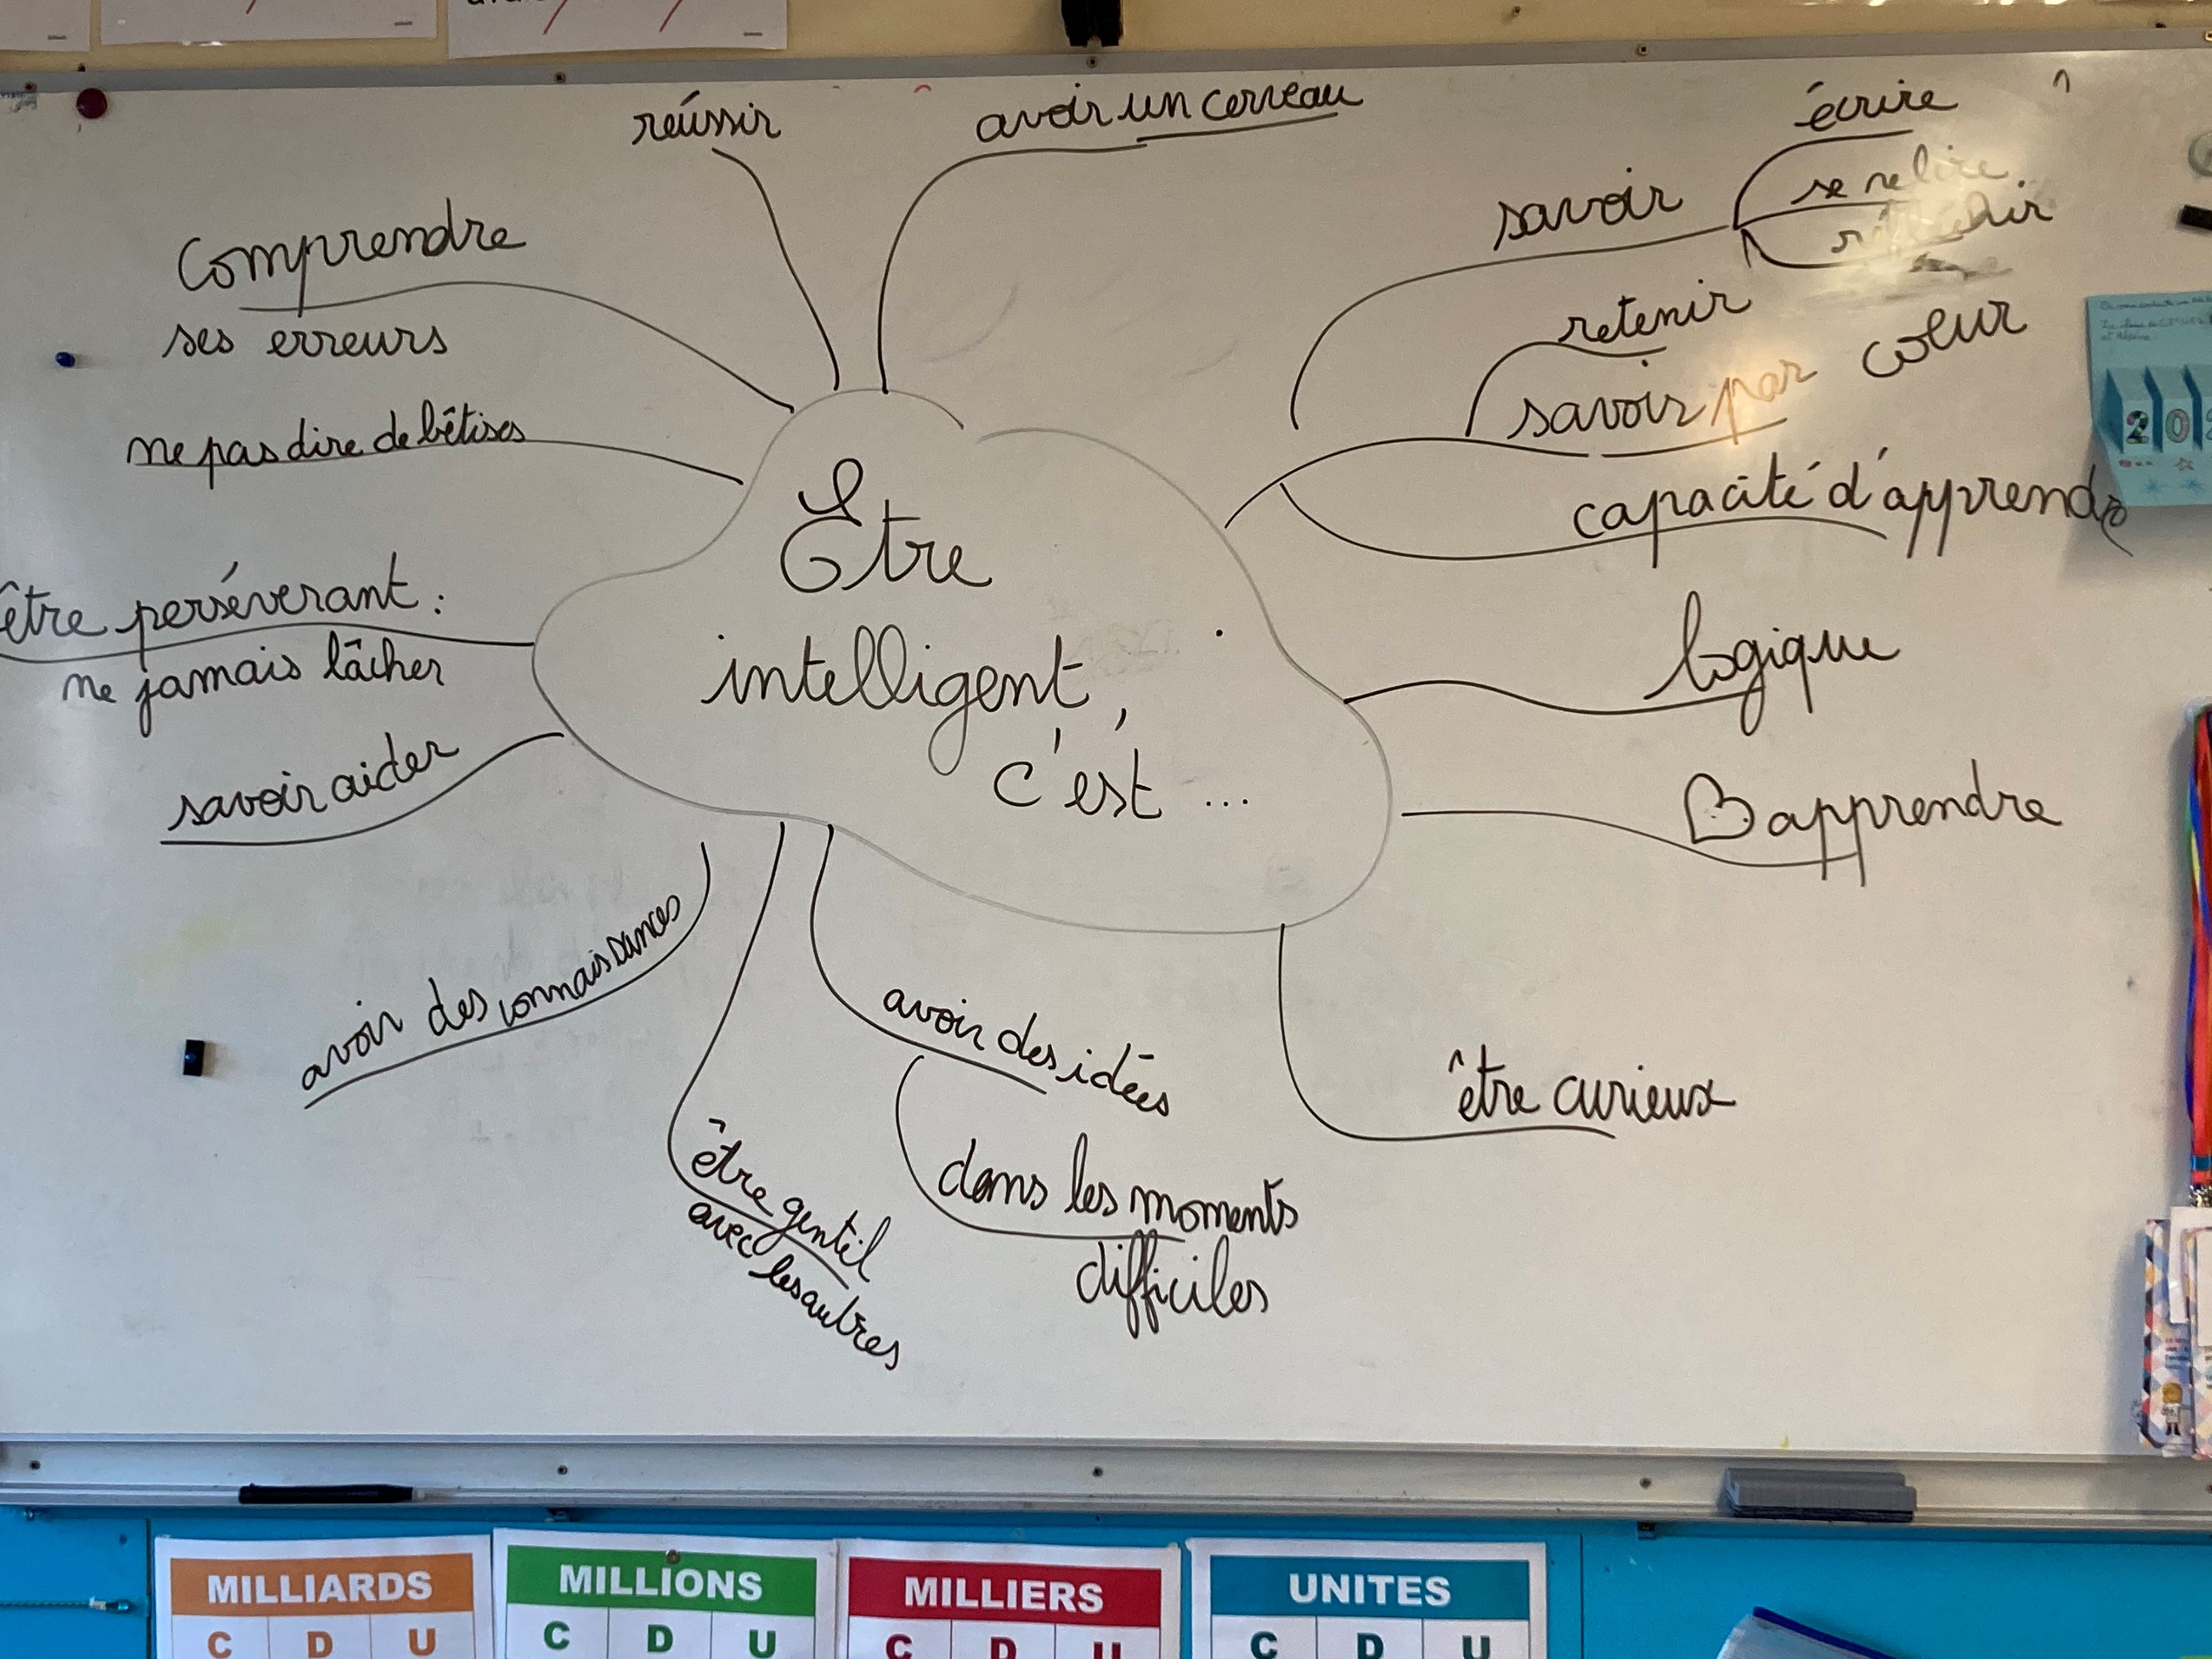 réussir
avoir un cerveau
écrire
se relire
réfléchir
savoir
Comprendre
ses erreurs
retenir
savoir par coeur
ne pas dire de bêtises
capacité d'apprendre
Être
intelligent,
c'est ...
être perséverant :
ne jamais lâcher
logique
savoir aider
apprendre
avoir des connaissances
avoir des idées
dans les moments
difficiles
être curieux
être gentil
avec les autres
MILLIARDS
C D U
MILLIONS
C D U
MILLIERS
C D U
UNITES
C D U